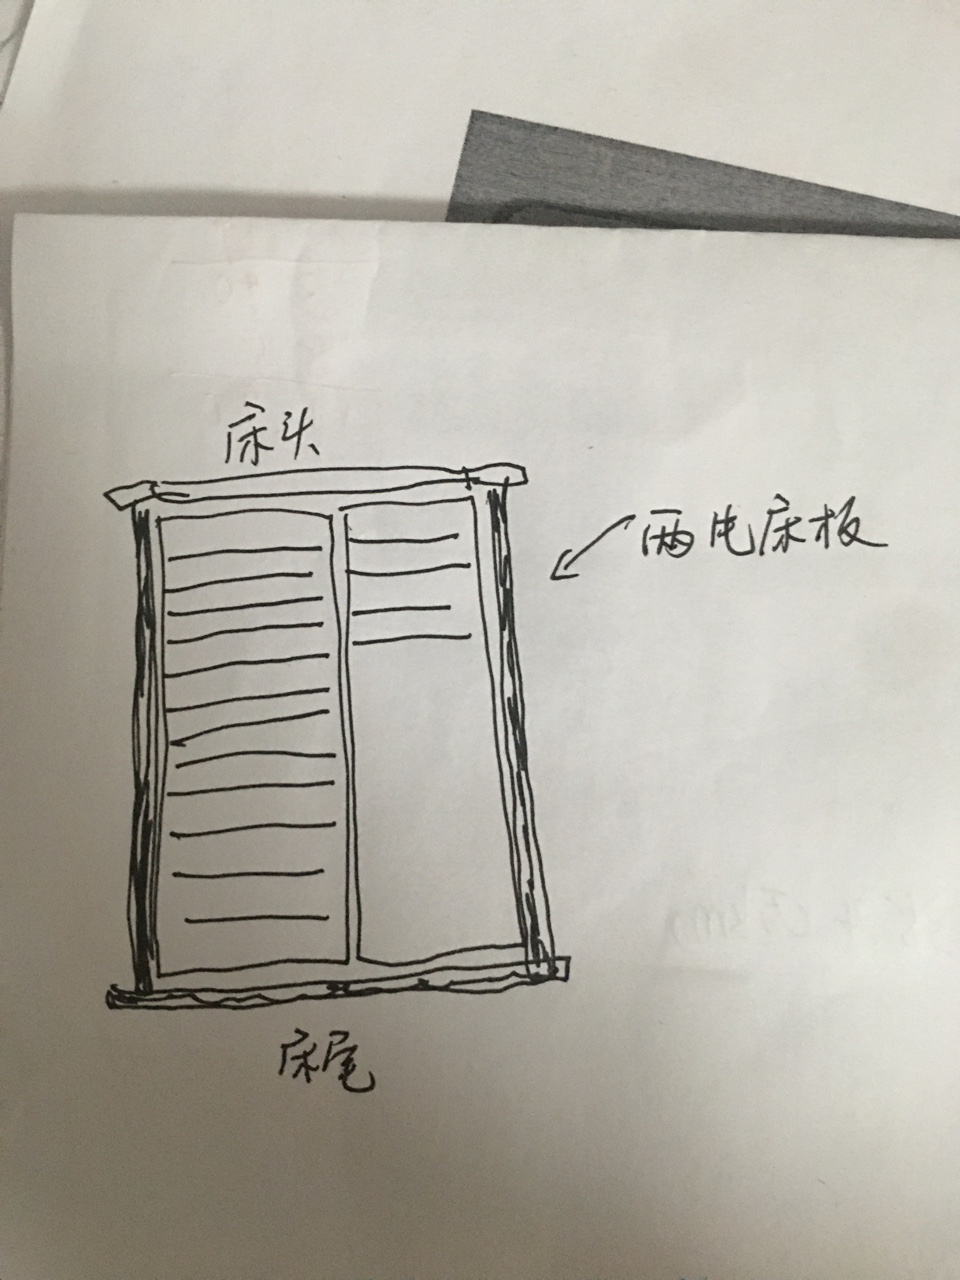 床头
两片床板
床尾